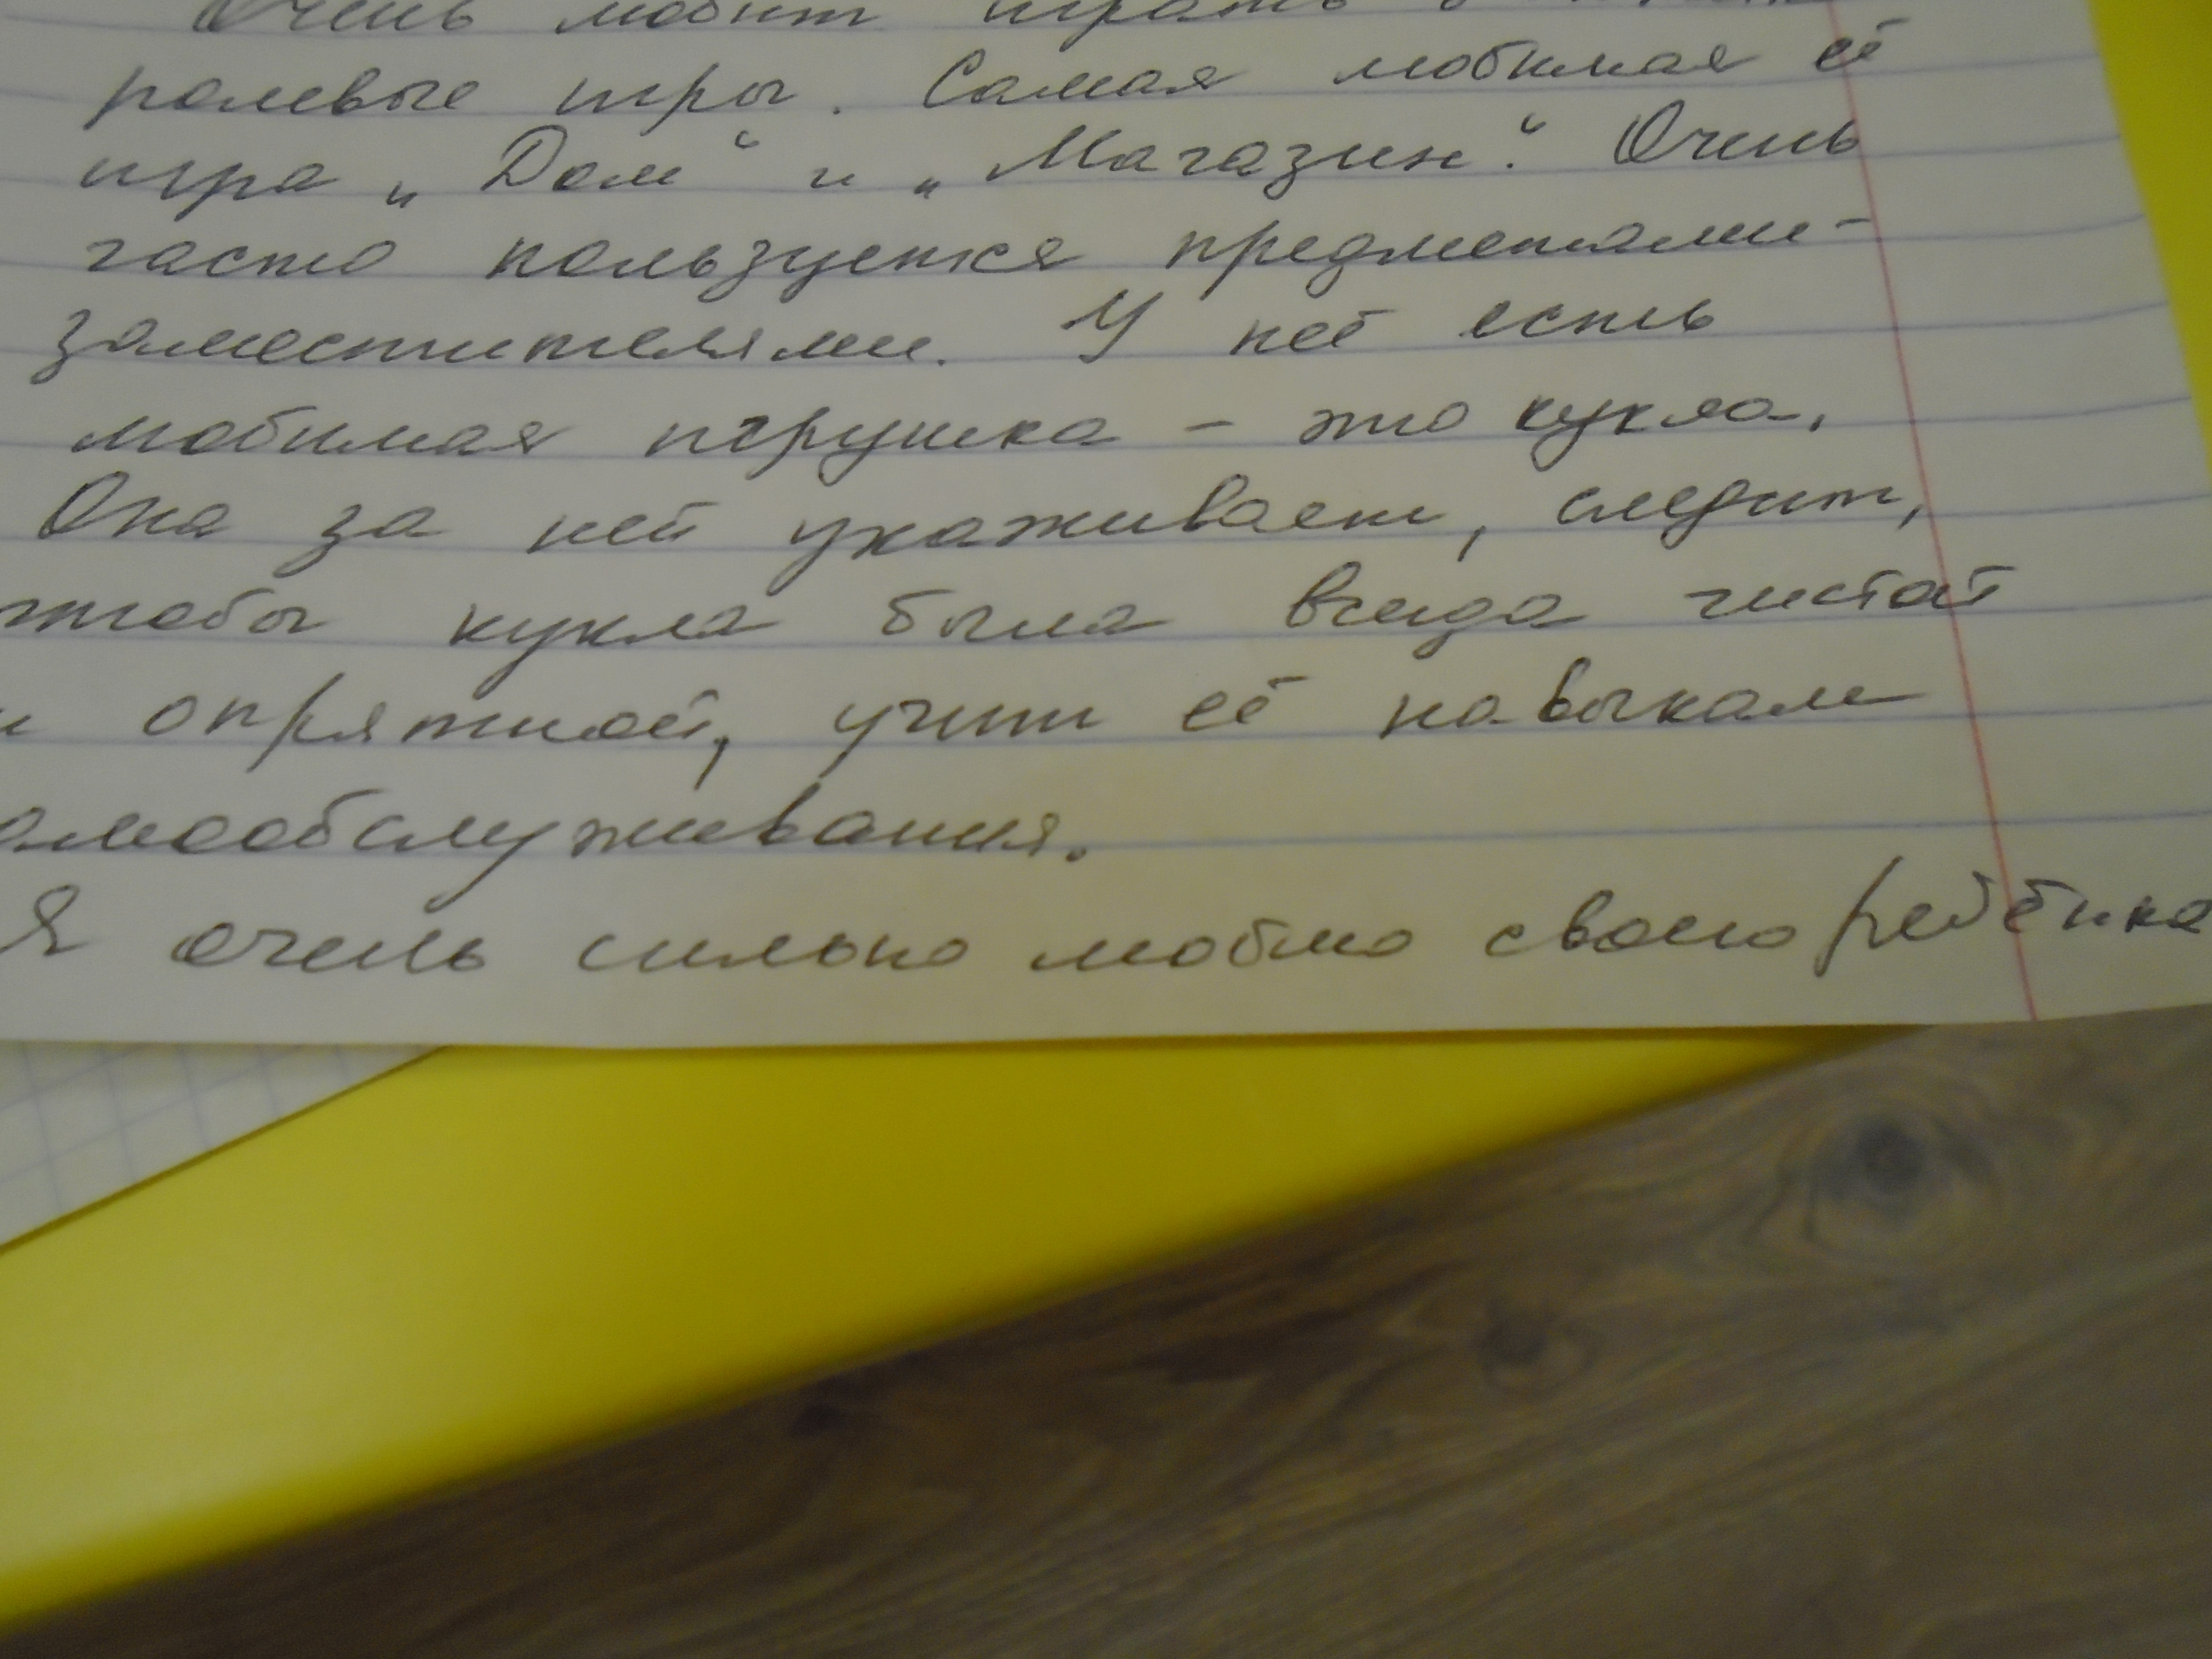 Очень любит играть в
ролевые игры. Самая любимая её
игра „Дом“ и „Магазин“. Очень
часто пользуется предметами-
заместителями. У неё есть
любимая игрушка - это кукла.
Она за ней ухаживает, следит,
чтобы кукла была всегда чистой
и опрятной, учит её навыкам
амообслуживания.
Я очень сильно люблю своего ребёнка